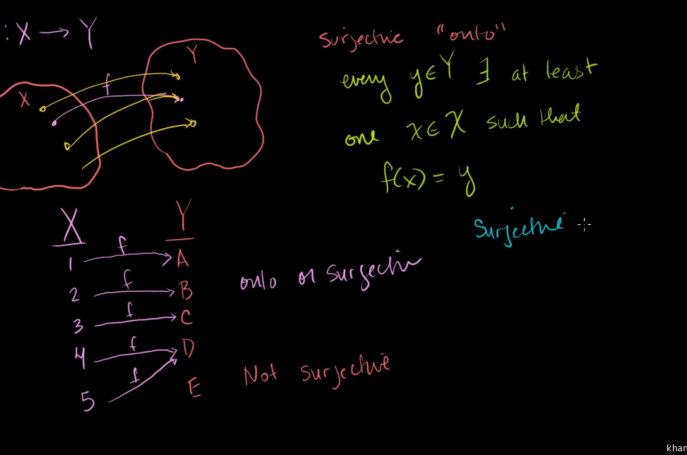 : X → Y
Surjective "onto"
Y
f
X
every y∈Y ∃ at least
one x∈X such that
f(x) = y
Surjective
X Y
1 f A
2 f B
3 f C
4 f D
5 f E
onto or surjective
Not surjective
khan